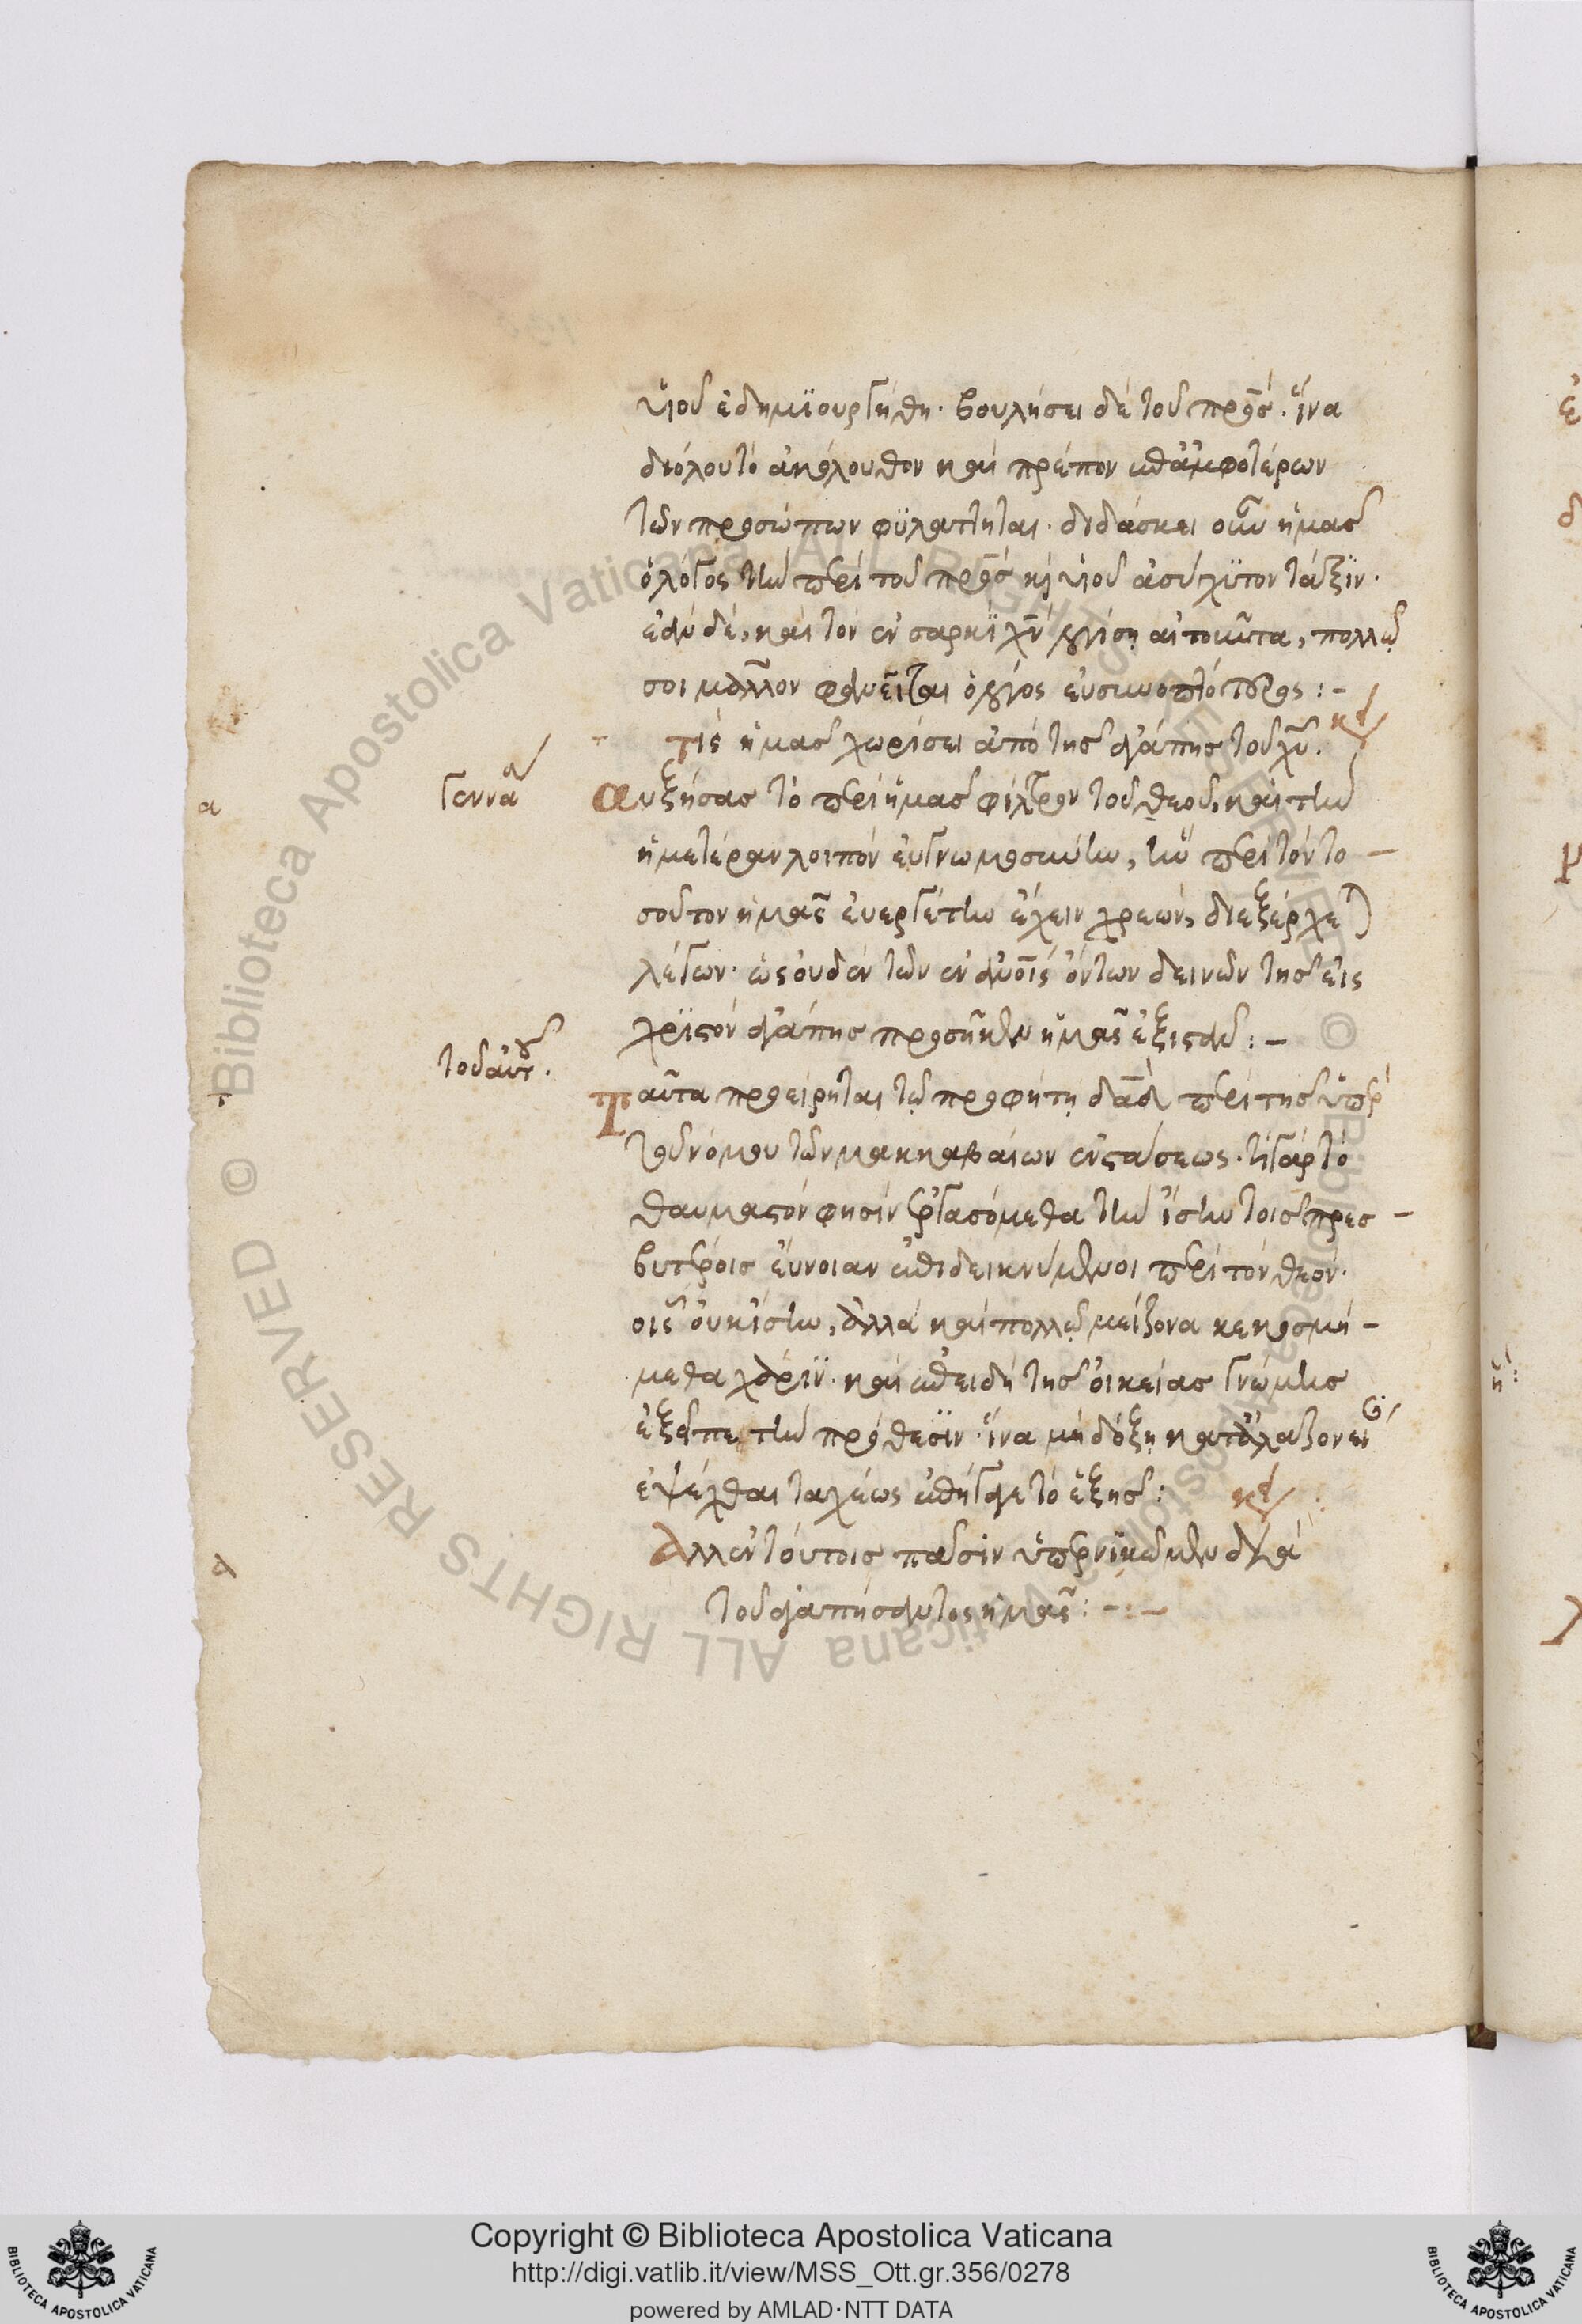 υἱοῦ ἐδημϊουργήθη· βουλήσει δὲ τοῦ πρς̅· ἵνα
διόλου τὸ ἀκόλουθον καὶ πρέπον ἐπ' ἀμφοτέρων
τῶν προσώπων φϋλάττηται· διδάσκει οὖν ἡμᾶς
ὁ λόγος τὴν περὶ τοῦ πρς̅ καὶ υἱοῦ ἀσύγχϋτον τάξϊν·
ἐὰν δὲ, καὶ τὸν ἐν σαρκὶ χν̅ αἰτοῦντα, πολλῷ
σοι μᾶλλον φανεῖται ὁ λόγος εὐσυνοπτότερος :-
τίς ἡμᾶς χωρίσει ἀπὸ τῆς ἀγάπης τοῦ χυ̅· κε
Γεννα
α
αὐξήσας τὸ περὶ ἡμᾶς φίλτρον τοῦ θεοῦ, καὶ τὴν
ἡμετέραν λοιπὸν εὐγνωμοσύνην, ἣν περὶ τὸν το-
σοῦτον ἡμᾶς εὐεργέτην ἔχειν χρεὼν, διεξέρχε
λέγων· ὡς οὐδὲν τῶν ἐν ἀνοῖς ὄντων δεινῶν τῆς εἰς
χρϊστὸν ἀγάπης προσῆκεν ἡμᾶς ἐξιστᾶν :-
τοῦ αὐτ.
ταῦτα προείρηται τῷ προφήτῃ δαδ̅ περὶ τῆς ὑπὲρ
τοῦ νόμου τῶν μακκαβαίων ἐνστάσεως· τί γὰρ τὸ
θαυμαστὸν φησὶν ἐργασόμεθα τὴν ἴσην τοῖς πρεσ-
βυτέροις εὔνοιαν ἐπιδεικνύμενοι περὶ τὸν θεόν·
οἷς οὐκ ἴσην, ἀλλὰ καὶ πολλῷ μείζονα κεκοσμή-
μεθα χάρϊν· καὶ ἐπειδὴ τῆς οἰκείας γνώμης
ἐξεῖπε τὴν πρόθεσϊν· ἵνα μὴ δόξῃ κατ' ἀλαζονεί
ἐψέχθαι ταχέως ἐπήγαγε τὸ ἑξῆς : κε
ἀλλ' ἐν τούτοις πᾶσιν ὑπερνϊκῶμεν διὰ
τοῦ ἀγαπήσαντος ἡμᾶς :-:-
Copyright © Biblioteca Apostolica Vaticana
http://digi.vatlib.it/view/MSS_Ott.gr.356/0278
powered by AMLAD·NTT DATA
BIBLIOTECA APOSTOLICA VATICANA
BIBLIOTECA APOSTOLICA VATICANA